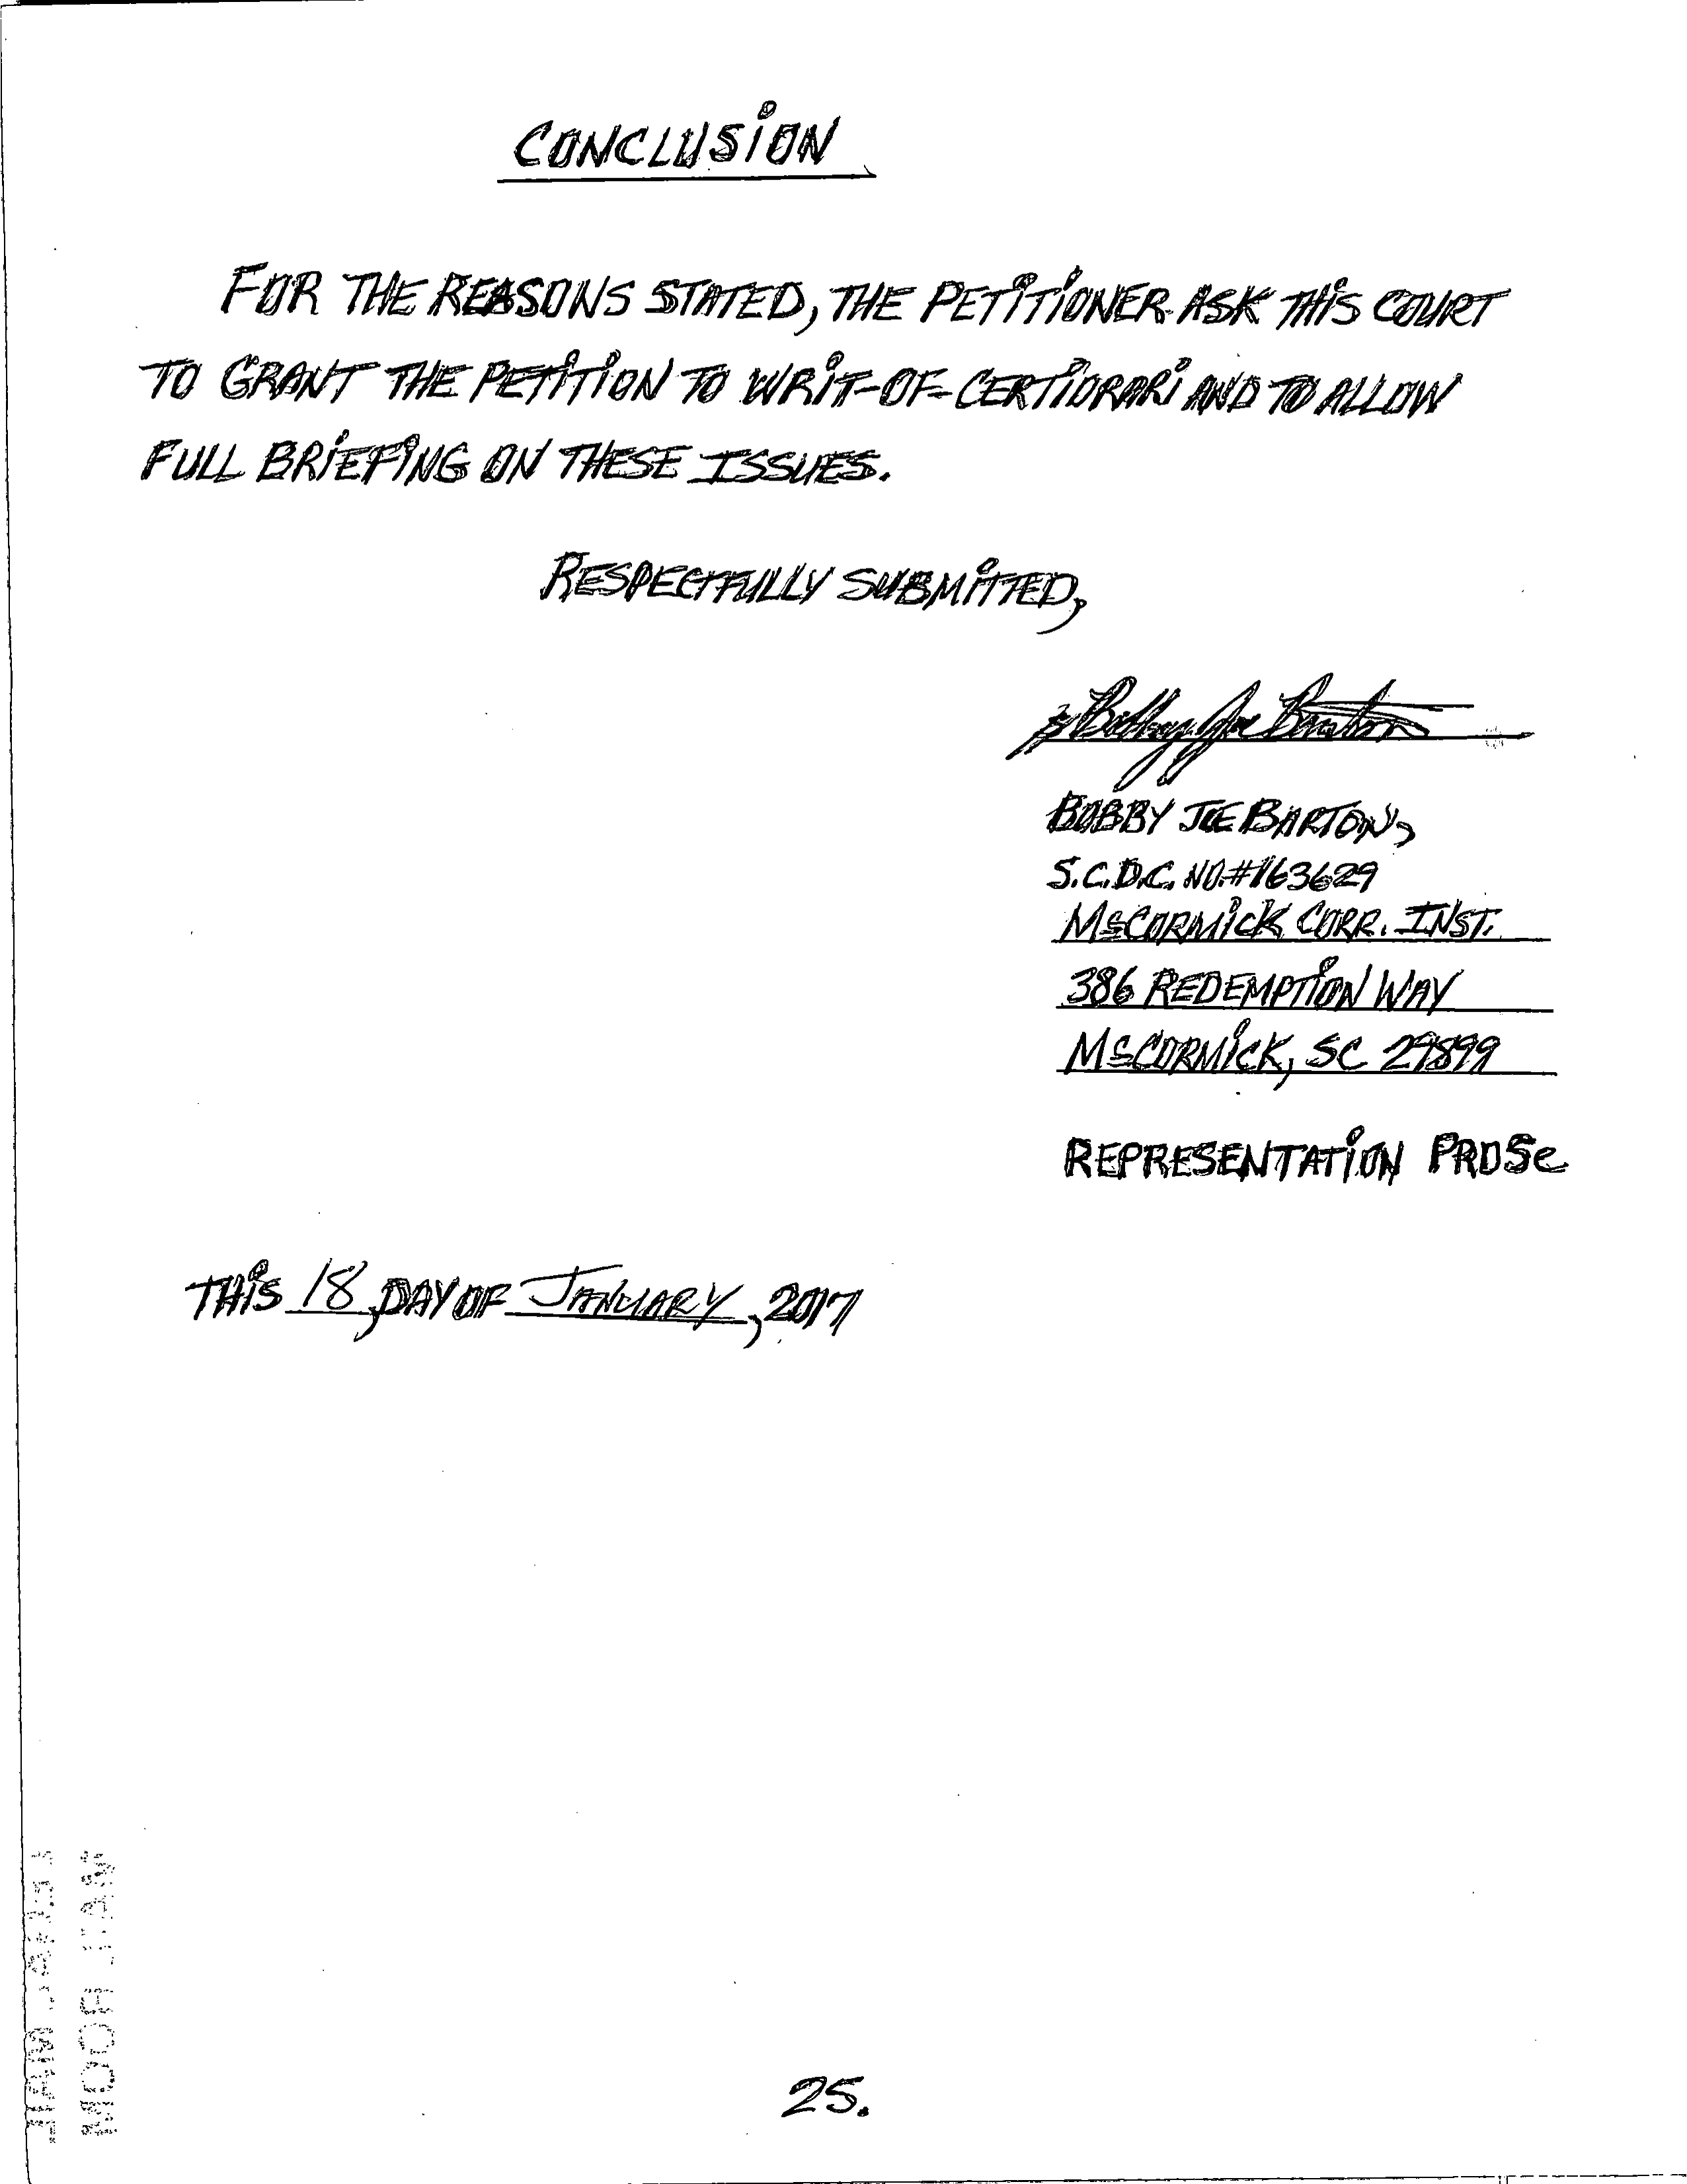 CONCLUSION
FOR THE REASONS STATED, THE PETITIONER ASK THIS COURT
TO GRANT THE PETITION TO WRIT-OF-CERTIORARI AND TO ALLOW
FULL BRIEFING ON THESE ISSUES.
RESPECTFULLY SUBMITTED,
Bobby Joe Barton
BOBBY JOE BARTON,
S.C.D.C. NO.#163629
McCORMICK CORR. INST.
386 REDEMPTION WAY
McCORMICK, SC 29899
REPRESENTATION PROSe
THIS 18, DAY OF JANUARY, 2017
MAIL ROOM
25.